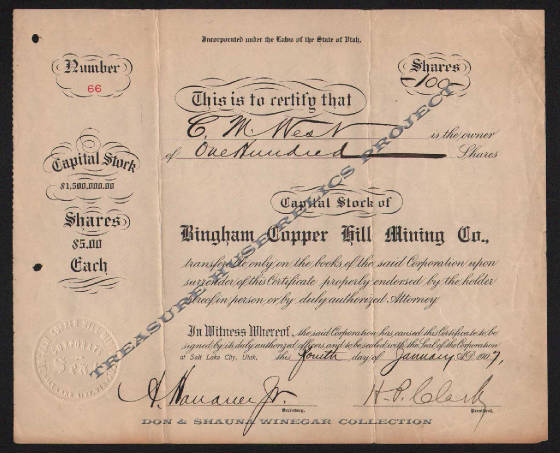 Incorporated under the Laws of the State of Utah.
Number
66
Shares
-100-
This is to certify that
C. M. West
is the owner
of One Hundred Shares
Capital Stock
$1,500,000.00
Shares
$5.00
Each
Capital Stock of
Bingham Copper Hill Mining Co.,
transferable only on the books of the said Corporation upon
surrender of this Certificate properly endorsed by the holder
hereof in person or by duly authorized Attorney.
In Witness Whereof, the said Corporation has caused this Certificate to be
signed by its duly authorized officers and to be sealed with the Seal of the Corporation
at Salt Lake City, Utah, this fourth day of January A.D. 1907,
A. Hanauer Jr.
Secretary.
H. P. Clark
President.
TREASURE HUSE RELICS PROJECT
DON & SHAUNA WINEGAR COLLECTION